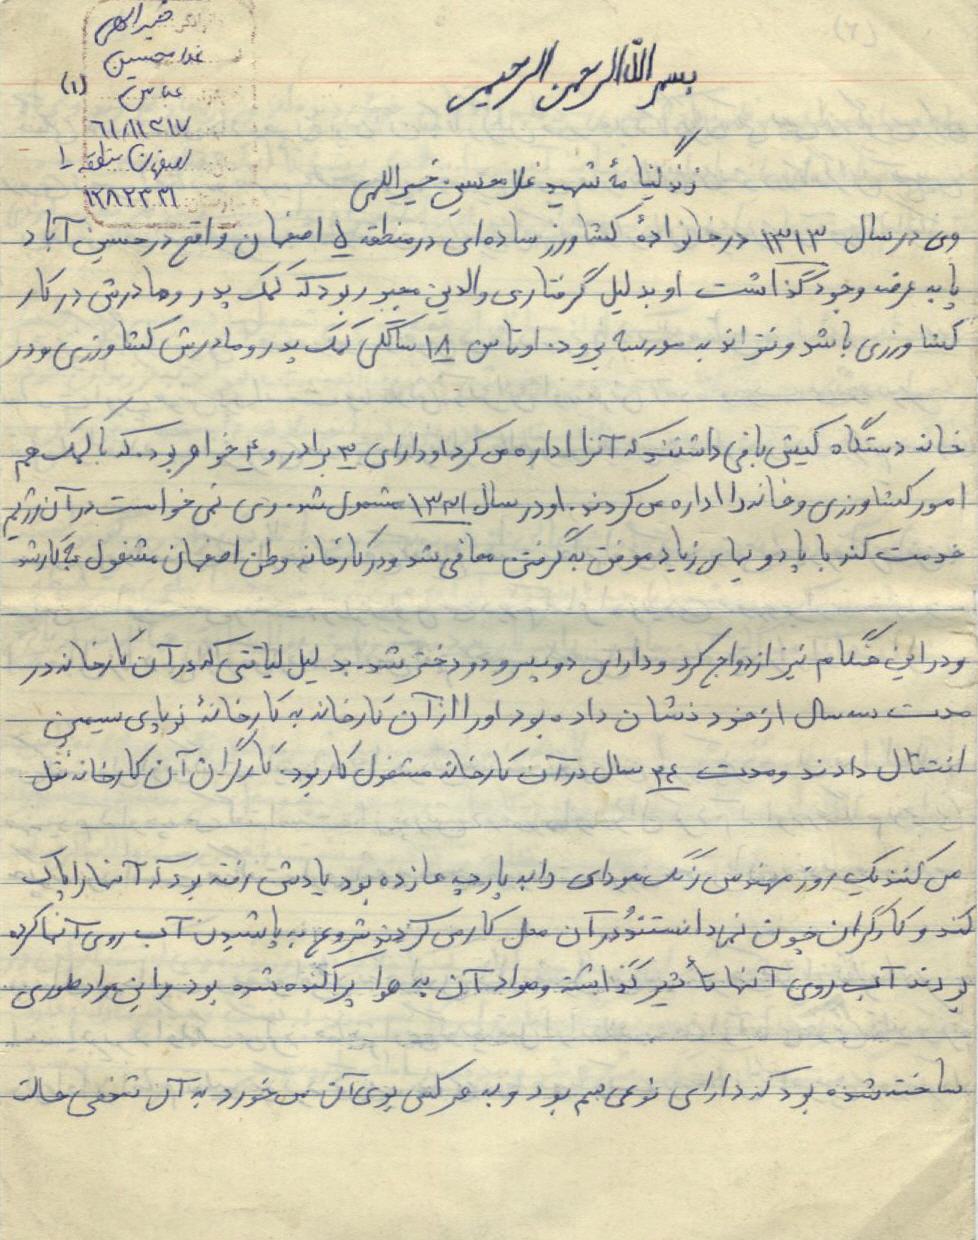 خیرالهی
غلامحسین
عباس
(۱)
۶۱/۱۱/۱۷
اصفهان منطقه ۱
۱۲۸۲۳۳۱
بسم الله الرحمن الرحیم
زندگینامهٔ شهید غلامحسین خیراللهی
وی در سال ۱۳۱۳ در خانوادهٔ کشاورز ساده‌ای در منطقه ۵ اصفهان واقع در حسین آباد
پا به عرصه وجود گذاشت او بدلیل گرفتاری والدین مجبور بود که کمک پدر و مادرش در کار
کشاورزی باشد و نتوانه به مدرسه برود. او تا سن ۱۸ سالگی کمک پدر و مادرش کشاورزی و در
خانه دستگاه گیتی بافی داشتند که آنرا اداره می کرد او دارای ۳ برادر و ۴ خواهر بود. که با کمک هم
امور کشاورزی و خانه را اداره می کردند. او در سال ۱۳۳۱ مشمول شد. وی نمی خواست در آن رژیم
خدمت کند با پا دو یهای زیاد موفق به گرفتن معافی شد و در کارخانه وطن اصفهان مشغول به کار شد
و در این هنگام نیز ازدواج کرد و دارای دو پسر و دو دختر شد. بدلیل لیاقتی که در آن کارخانه در
مدت سه سال از خود نشان داده بود او را از آن کارخانه به کارخانهٔ نوپای سیمین
انتقال دادند و مدت ۲۴ سال در آن کارخانه مشغول کار بود. کارگران آن کارخانه نقل
می کنند یک روز مهندس رنگ موادی را به پارچه ها زده بود یادش رفته بود که آنها را پاک
کند و کارگران چون نمی‌دانستند و در آن محل کار می کردند شروع به پاشیدن آب روی آنها کرده
بودند آب روی آنها تأثیر گذاشته و مواد آن به هوا پراکنده شده بود و این مواد طوری
ساخته شده بود که دارای نوعی سم بود و به هر کس بوی آن می خورد به آن شخص حالت